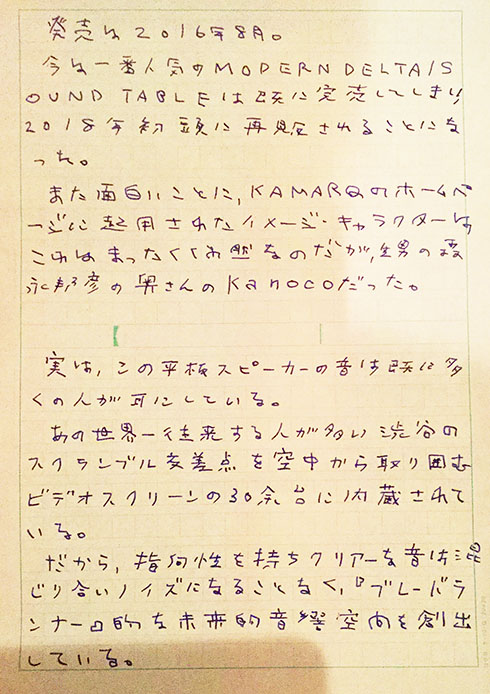 発売は2016年8月。
今は一番人気のMODERN DELTA/S
OUND TABLEは既に完売してしまい
2018年初頭に再発されることにな
った。
また面白いことに、KAMARQのホームペ
ージに起用されたイメージ・キャラクターは
これはまったくの偶然なのだが、甥の
永邦彦の奥さんのKanocoだった。
実は、この平板スピーカーの音は既に多
くの人が耳にしている。
あの世界一往来する人が多い渋谷の
スクランブル交差点を空中から取り囲む
ビデオスクリーンの30余台に内蔵されて
いる。
だから、指向性を持ちクリアーな音は混
じり合いノイズになることなく、『ブレードラ
ンナー』的な未来的音響空間を創出
している。